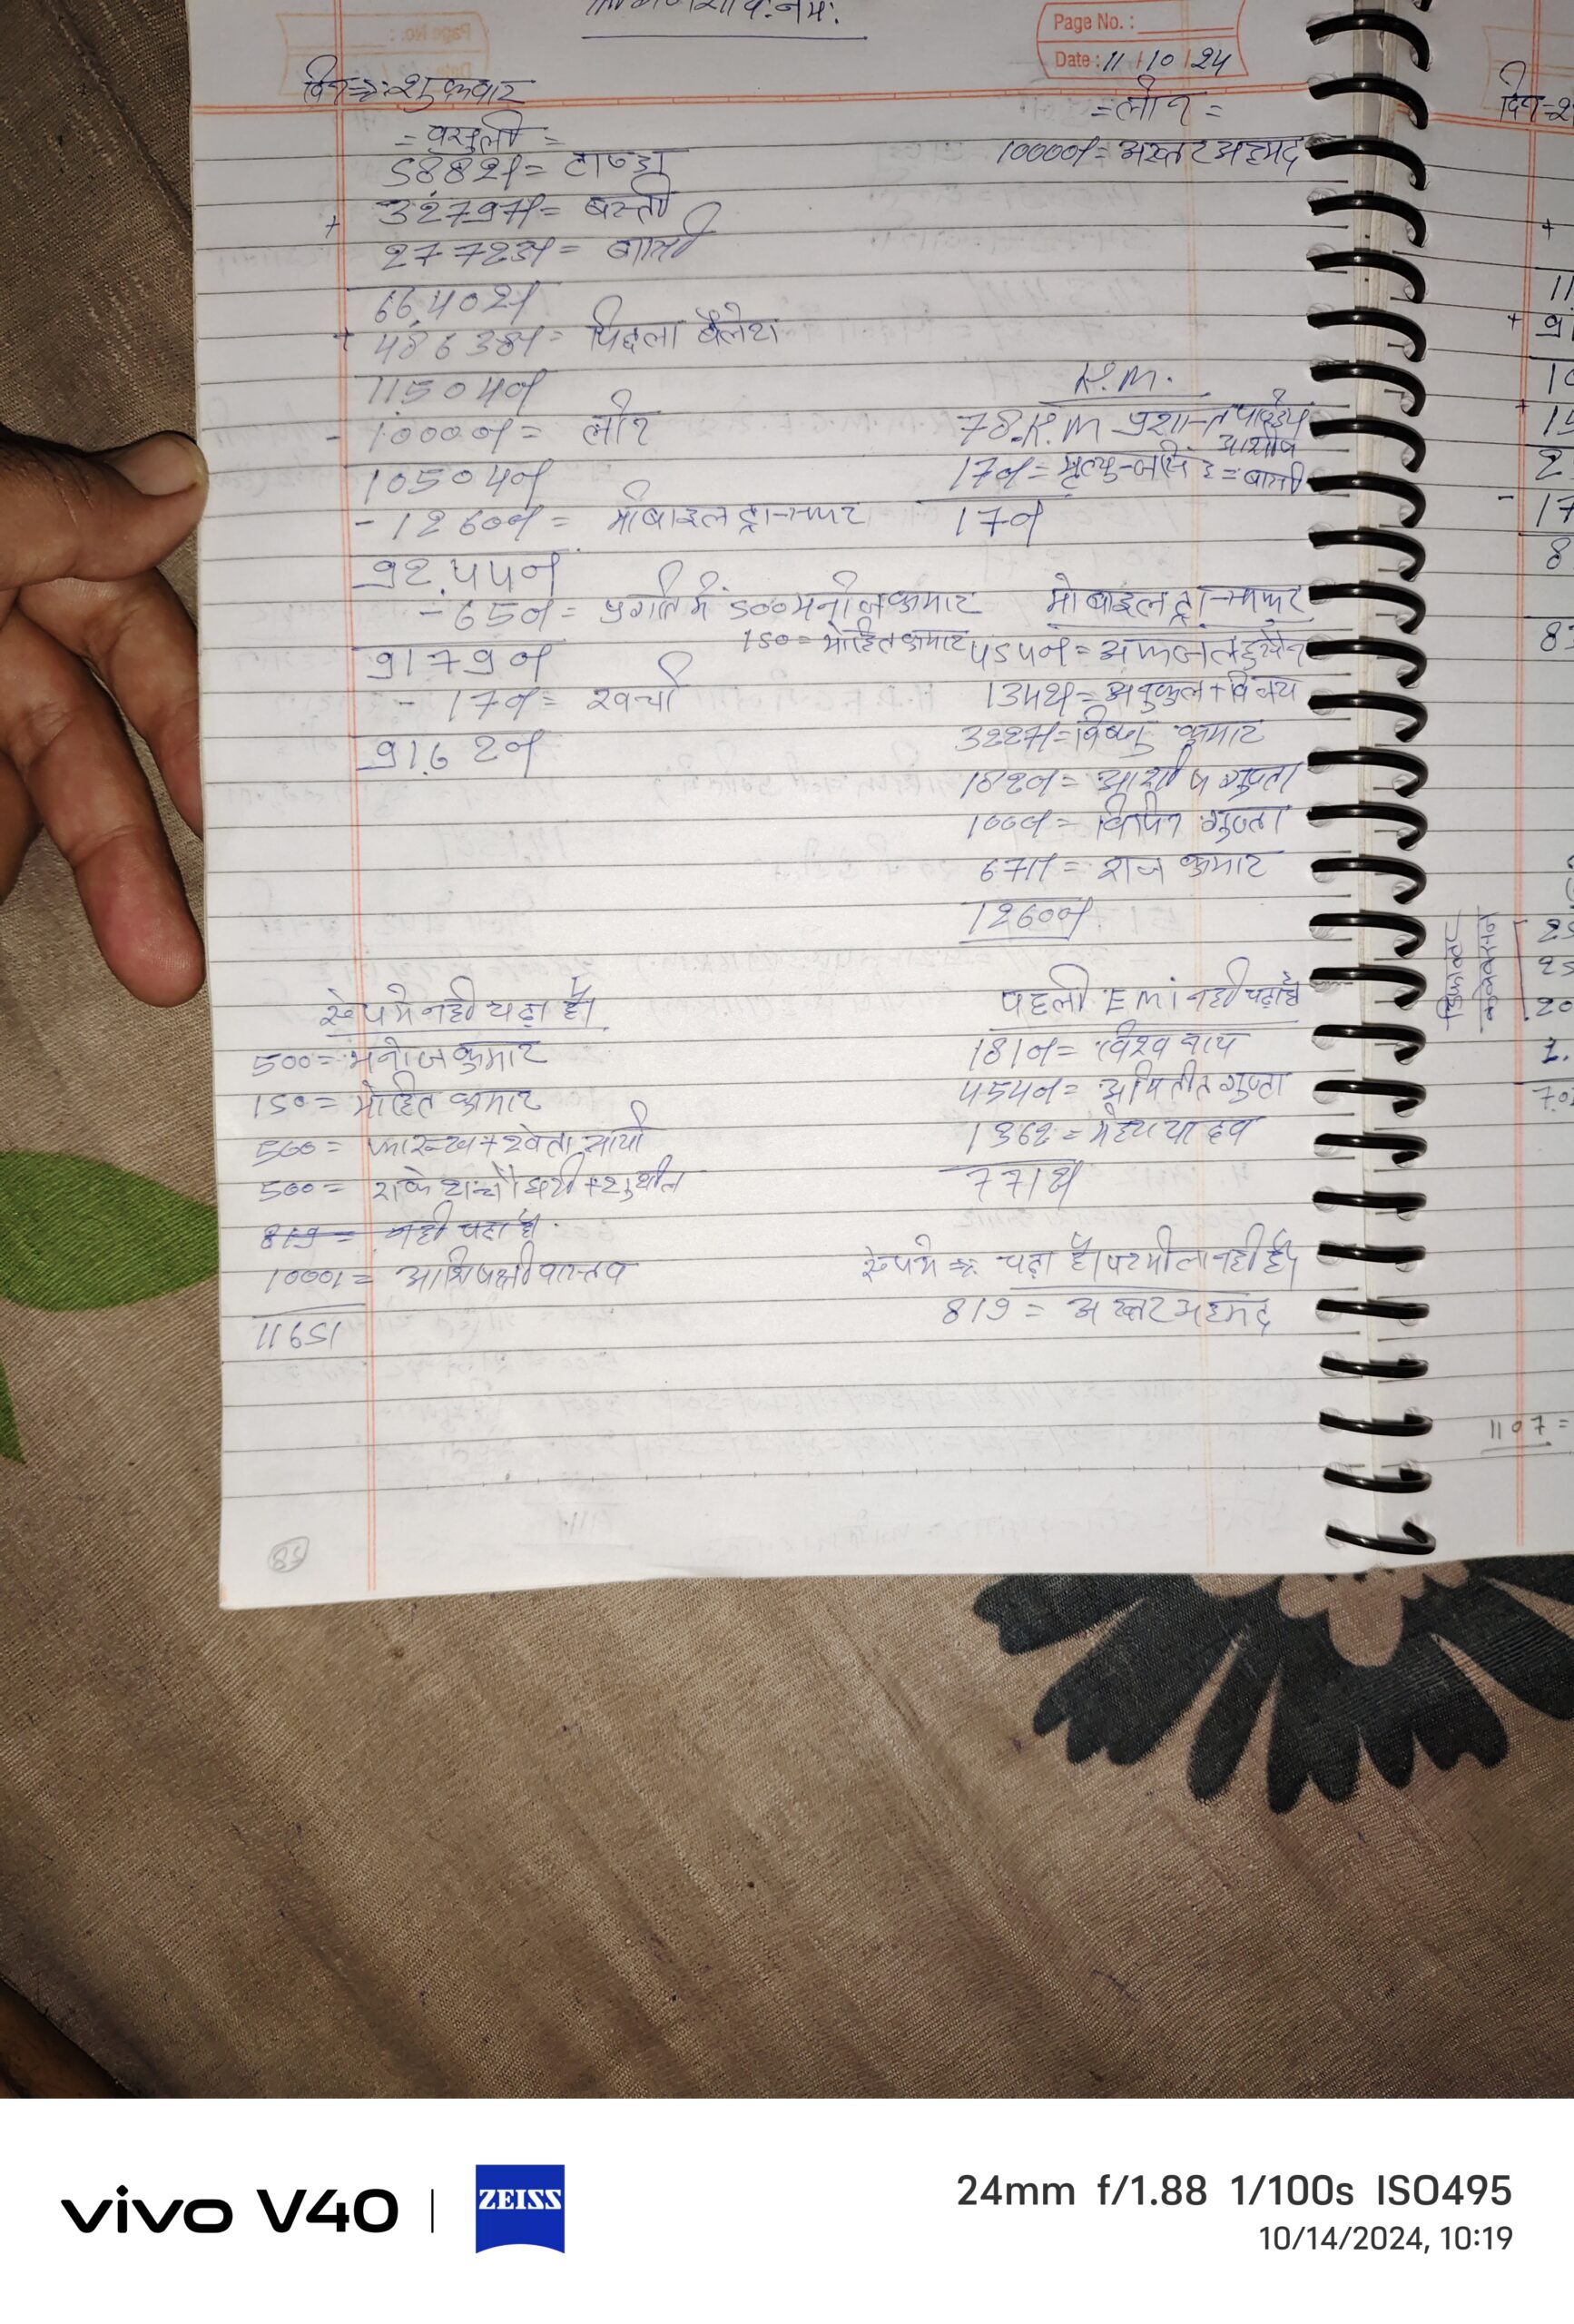 Page No. :
Date : 11/10/24
दिन = शुक्रवार
= वसुली =
5882/= टाण्डा
+ 32797/= बस्ती
27723/= बाती
66402/
+ 48638/= पिछला बैलेंश
115040/
- 10000/= लोन
105040/
- 12600/= मोबाइल ट्रान्सफर
92440/
- 650/= प्रगति में 500 मनोज कुमार
150 = मोहित कुमार
91790/
- 170/= खर्चा
91620/
= लोन =
10000/= अख्तर अहमद
K.M.
78.K.M प्रशान्त पाण्डेय
170/=
170/
मोबाइल ट्रान्सफर
4540/= अफजल हुसैन
1342/= अनुकुल + विनय
3227/= विष्णु कुमार
1820/= आशीष गुप्ता
1000/= विपिन गुप्ता
671/= राज कुमार
12600/
रूपये नही चढ़ा है।
500 = मनोज कुमार
150 = मोहित कुमार
500 = फारूख + श्वेता आर्या
500 = राकेश चौधरी + सुशील
819 = नही चढ़ा है।
10001 =
11651
पहली EMi नही चढ़ा है
1810/=
4540/= गुप्ता
1362 = यादव
7712/
रूपये चढ़ा है। पर मीला नही है।
819 = अख्तर अहमद
85
1107 =
vivo V40
ZEISS
24mm f/1.88 1/100s ISO495
10/14/2024, 10:19